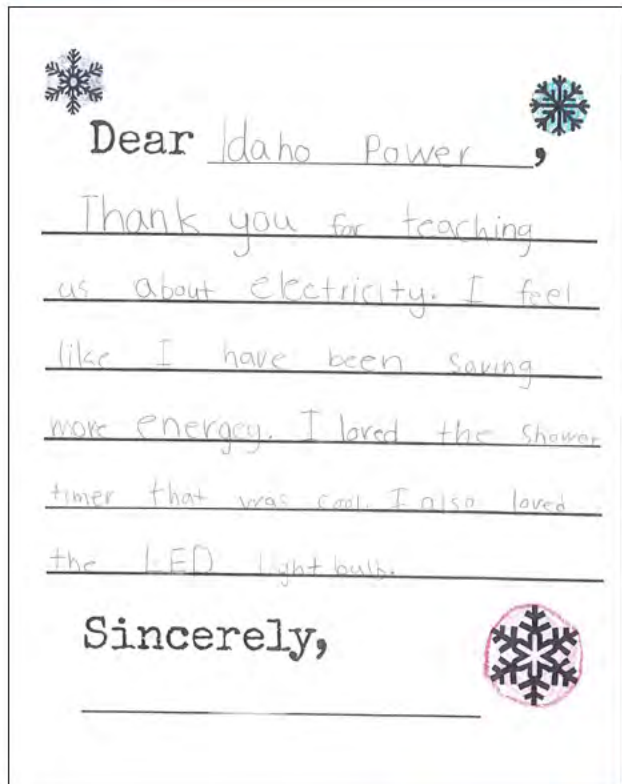 Dear Idaho Power,
Thank you for teaching
us about electricity. I feel
like I have been saving
more energey. I loved the shower
timer that was cool. I also loved
the LED lightbulb.
Sincerely,